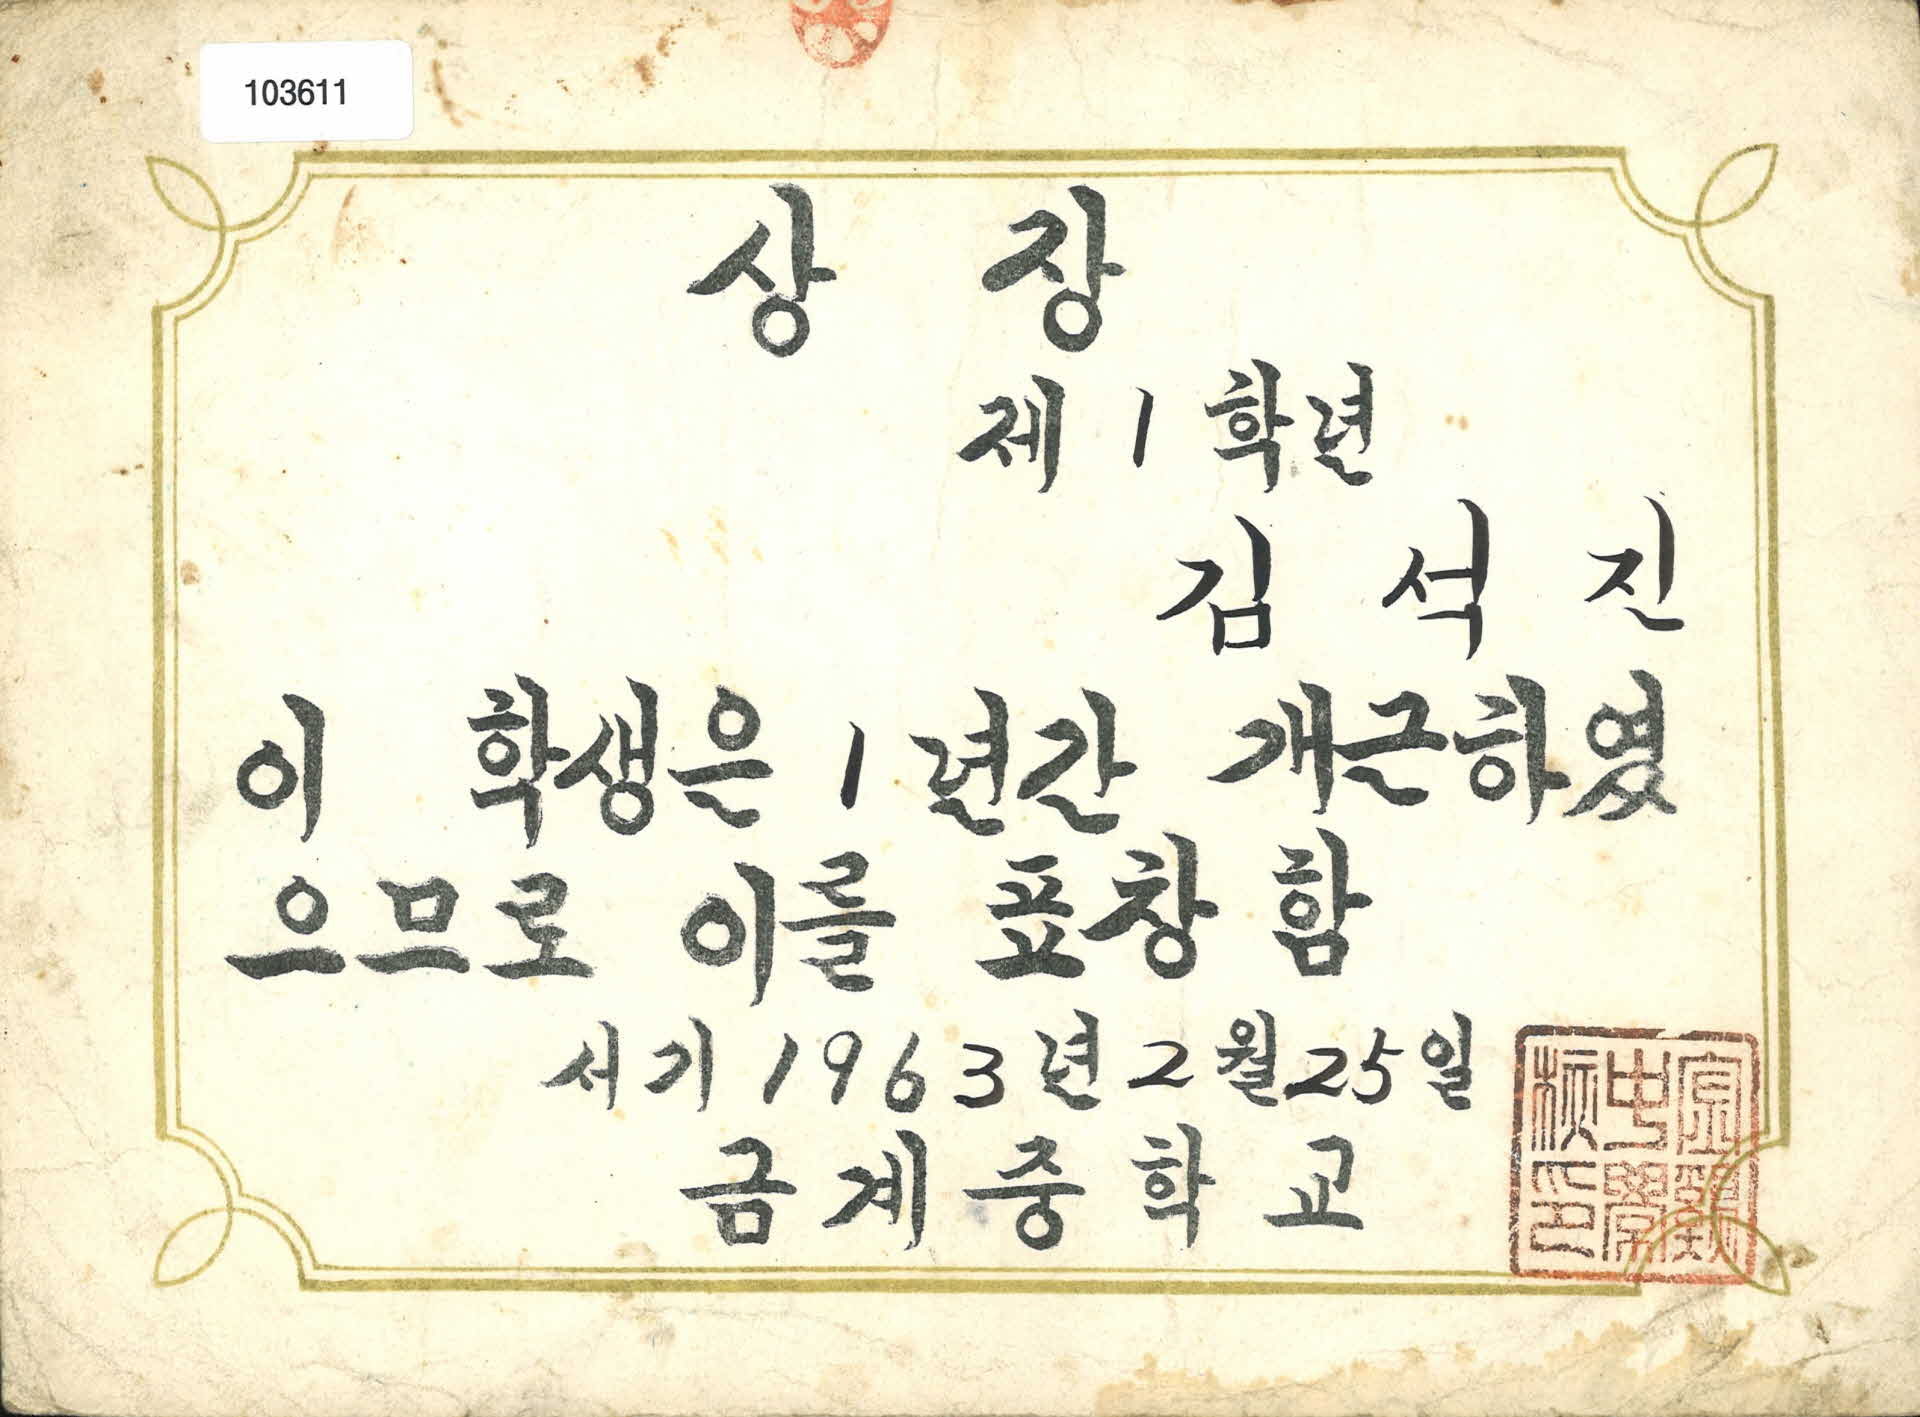 103611
상 장
제 1 학년
김 석 진
이 학생은 1 년간 개근하였
으므로 이를 표창함
서기 1963년 2월 25일
금계중학교